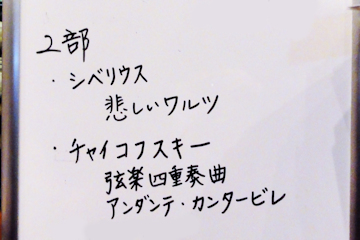 2部
・シベリウス
悲しいワルツ
・チャイコフスキー
弦楽四重奏曲
アンダンテ・カンタービレ